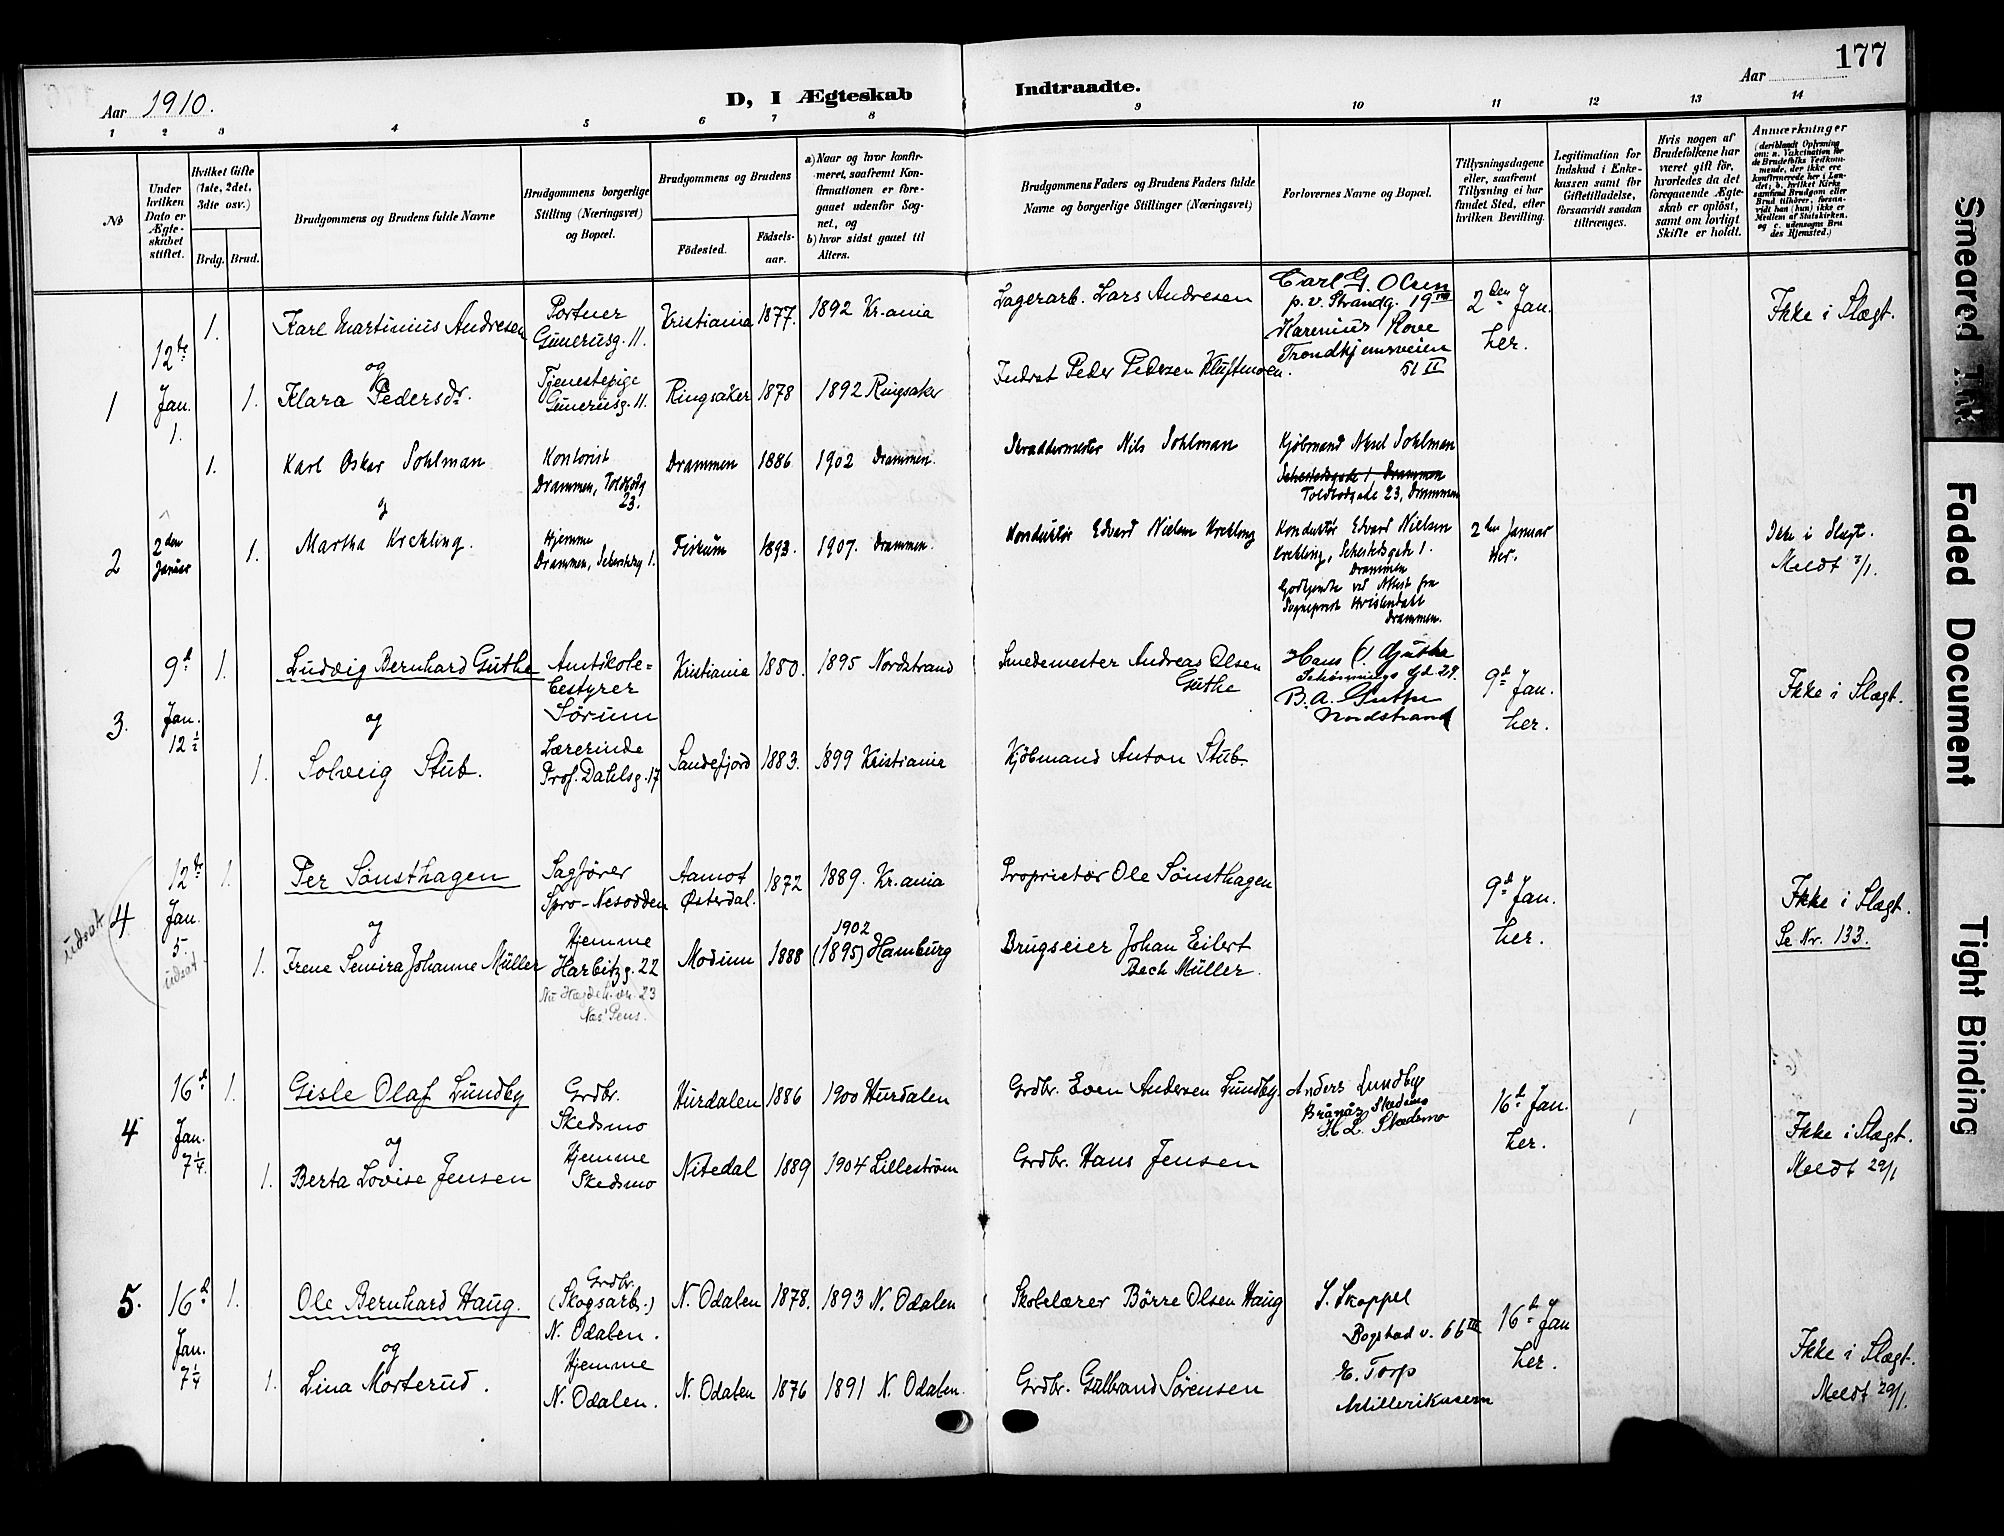 177
Aar 1910.
D, I Ægteskab Indtraadte.
Aar
1 2 3 4 5 6 7 8 9 10 11 12 13 14
No
Under hvilken Dato er Ægteskabet stiftet.
Hvilket Gifte (1ste, 2det, 3dte osv.)
Brdg. Brud.
Brudgommens og Brudens fulde Navne
Brudgommens borgerlige Stilling (Næringsvei) og Bopæl.
Brudgommens og Brudens
Fødested.
Fødselsaar.
a) Naar og hvor konfirmeret, saafremt Konfirmationen er foregaaet udenfor Sognet, og
b) hvor sidst gaaet til Alters.
Brudgommens Faders og Brudens Faders fulde Navne og borgerlige Stillinger (Næringsvei)
Forlovernes Navne og Bopæl.
Tillysningsdagene eller, saafremt Tillysning ei har fundet Sted, efter hvilken Bevilling.
Legitimation for Indskud i Enkekassen samt for Giftetilladelse, forsaavidt saadan tiltrænges.
Hvis nogen af Brudefolkene har været gift før, hvorledes da det foregaaende Ægteskab er opløst, samt om lovligt Skifte er holdt.
Anmærkninger
(deriblandt Oplysning om: a. Vakcination for de Brudefolks Vedkommende, der ikke ere konfirmerede her i Landet; b. hvilket Kirkesamfund Brudgom eller Brud tilhører, forsaavidt han (hun) ikke er Medlem af Statskirken, og c. udensogns Brudes Hjemsted.)
1
12te Jan. 1.
1. Karl Martinius Andresen
Portner
Gunerusg. 11.
Kristiania 1877. 1892 Kr.ania
Lagerarb. Lars Andresen
Carl G. Olsen
p.v. Strandg. 19 III
Trondhjemsveien
51 II
2den Jan.
her.
Ikke i Slægt.
og
1. Klara Pedersdr.
Tjenestepige
Gunerusg. 11.
Ringsaker 1878 1892 Ringsaker
Inderst Peder Pedersen Kluftmoen.
2
2den Januar
1. Karl Oskar Pohlman
Kontorist
Drammen, Toldbodg
23.
Drammen 1886 1902 Drammen.
Skræddermester Nils Pohlman
Kjøbmand Aksel Pohlman
Schestedsgade 1, Drammen
Toldbodgade 23, Drammen
og
1. Martha Krekling.
Hjemme
Drammen, Schestedsg 1.
Fiskum 1893. 1907. Drammen.
Konduktør Edvard Nielsen Krekling
Konduktør Edvard Nielsen
Krekling, Schestedsgade 1.
Drammen
Godkjendte ved Attest fra
Sogneprest
Drammen.
2den Januar
her.
Ikke i Slægt.
Meldt 3/1.
3.
9d Jan. 12 1/2
1. Ludvig Bernhard Guthe
Amtskole=
bestyrer
Sørum
Kristiania 1880. 1895 Nordstrand
Smedemester Andreas Olsen
Guthe
Hans O. Guthe
Schønnings gd 29.
B. A. Guthe
Nordstrand
9d Jan.
her.
Ikke i Slægt.
og
1. Solveig Stub.
Lærerinde
Prof. Dahlsg. 17
Sandefjord 1883. 1899 Kristiania
Kjøbmand Anton Stub.
udsat
4
12te Jan. 5
udsat
1. Per Sønsthagen
Sagfører
Spro-Nesodden
Aamot
Østerdal.
1872 1889. Kr.ania
Proprietær Ole Sønsthagen
9d Jan.
her.
Ikke i Slægt.
Se Nr. 133.
og
1. Irene Semira Johanne Müller
Hjemme
Harbitzg. 22
Modum 1888 1902
(1895) Hamburg
Brugseier Johan Eilert
Bech Müller.
4
16d Jan. 7 1/4.
1. Gisle Olaf Lundby
Grdbr.
Skedsmo
Hurdalen 1886 1900 Hurdalen
Grdbr. Even Andersen Lundby.
Anders Lundby
Brånås Skedsmo
H L. Skedsmo
16d Jan.
her.
Ikke i Slægt.
Meldt 29/1
og
1. Berta Lovise Jensen
Hjemme
Skedsmo
Nitedal 1889 1904 Lillestrøm
Grdbr. Hans Jensen
5.
16d Jan. 7 1/4
1. Ole Bernhard Haug.
Grdbr.
(Skogsarb.)
N. Odalen.
N. Odalen 1878. 1893 N. Odalen
Skolelærer Børre Olsen Haug
S. Skoppel
Bogstad v. 66 III
E. Torp
Artillerikasern
16d Jan
her.
Ikke i Slægt.
Meldt 29/1.
og
1. Lina Morterud.
Hjemme
N. Odalen.
N. Odalen 1876 1891 N. Odalen.
Grdbr. Gulbrand Sørensen
Smeared Ink
Faded Document
Tight Binding